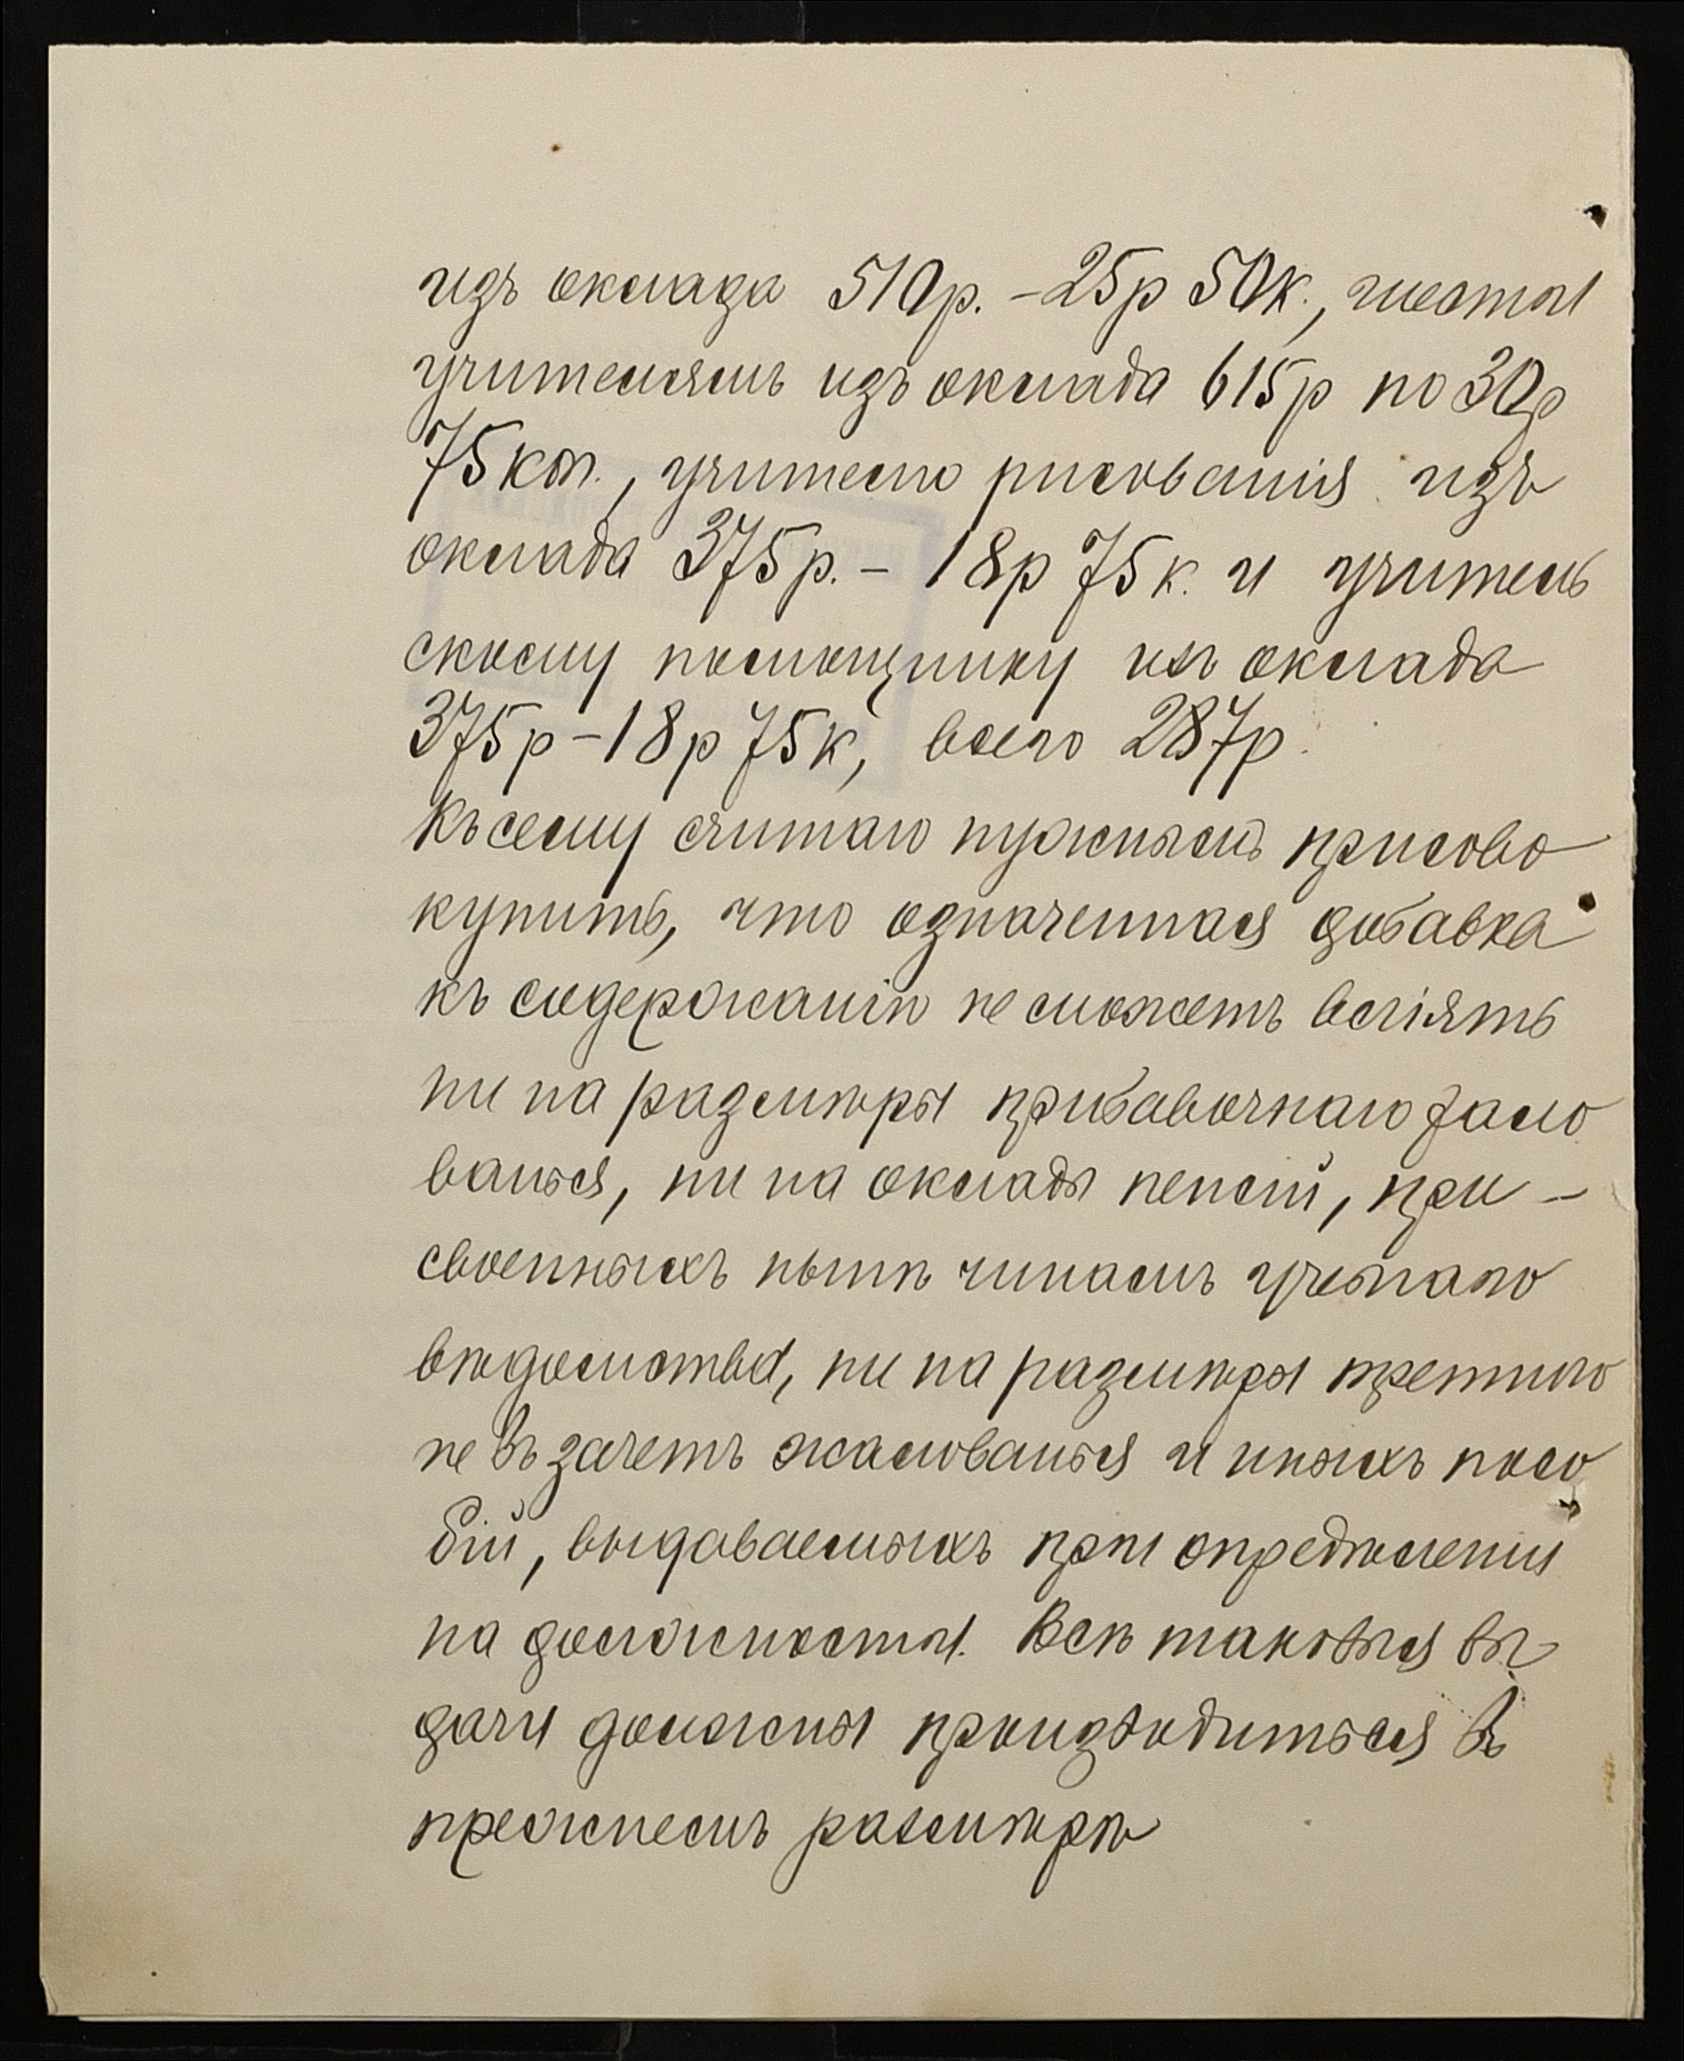 изъ оклада 510р. - 25р 50к., шести
учителямъ изъ оклада 615р по 30р
75коп., учителю рисованія изъ
оклада 375р. - 18р 75к. и учитель
скому помощнику изъ оклада
375р - 18р 75к, всего 287р.
Къ сему считаю нужнымъ присово
купить, что означенная добавка
къ содержанію не можетъ вліять
ни на размѣры прибавочнаго жало
ванья, ни на оклады пенсій, при-
своенныхъ нынѣ чинамъ учебнаго
вѣдомства, ни на размѣры третного
не въ зачетъ жалованья и иныхъ посо
бій, выдаваемыхъ при опредѣленіи
на должности. Всѣ таковыя вы-
дачи должны производиться въ
прежнемъ размѣрѣ